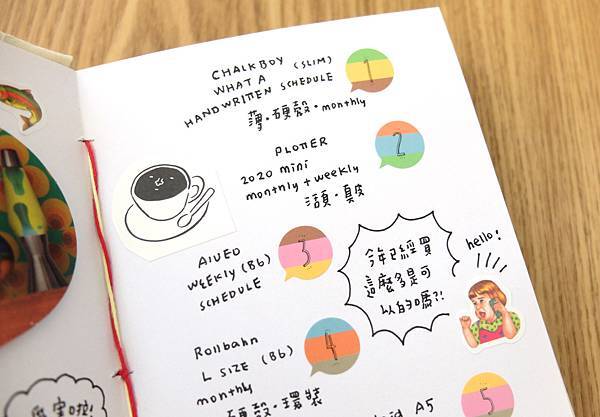 CHALKBOY (SLIM)
WHAT A
HANDWRITTEN SCHEDULE
1
薄・硬殼・monthly
PLOTTER
2020 mini
monthly + weekly
2
活頁・真皮
AIUEO
WEEKLY (B6)
SCHEDULE
3
今年已經買
這麼多是可
以的嗎?!
hello!
Rollbahn
L SIZE (B6)
monthly
硬殼・環裝
4
A5
5